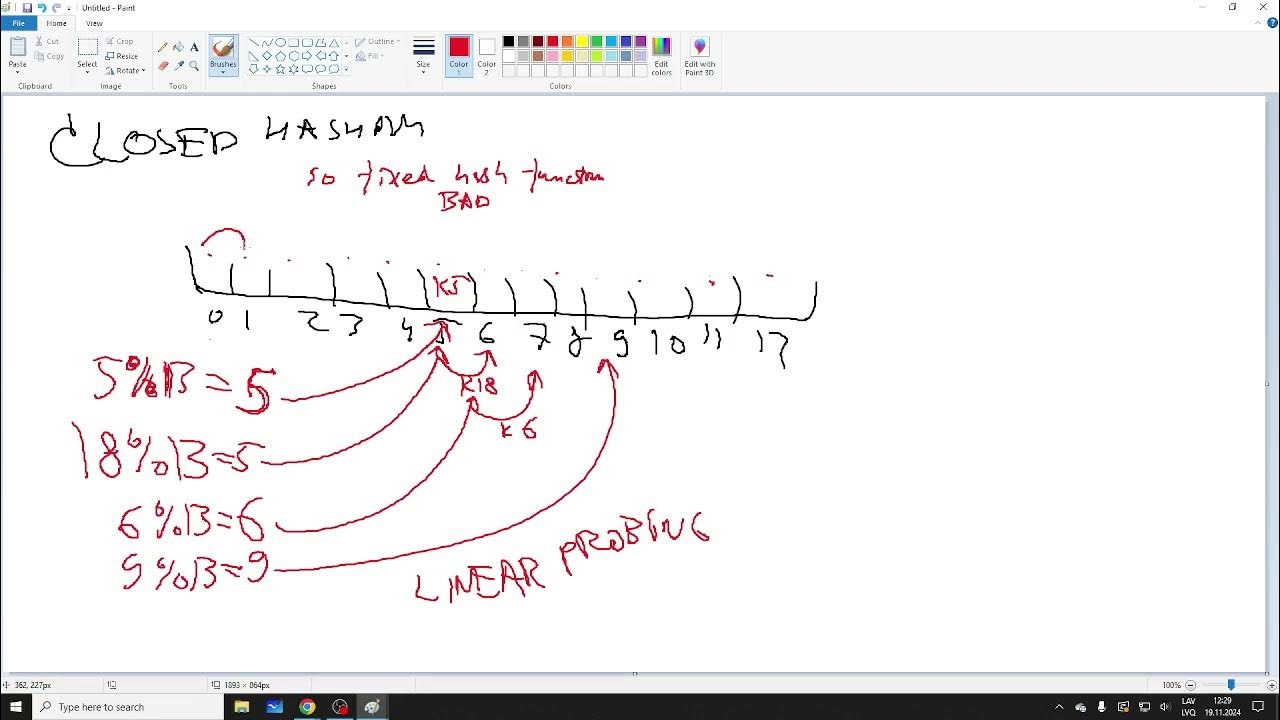 Untitled - Paint
File Home View
Paste
Cut
Copy
Clipboard
Select
Crop
Resize
Rotate
Image
Tools
Brushes
Shapes
Outline
Fill
Size
Color 1
Color 2
Edit colors
Colors
Edit with Paint 3D
CLOSED
so fixed hash function
BAD
K5
0 1 2 3 4 5 6 7 8 9 10 11 12
5%13=5
K18
K6
18%13=5
6%13=6
9%13=9
LINEAR PROBING
362, 227px
1893 × 864px
100%
Type here to search
LAV
LVQ
12:29
19.11.2024